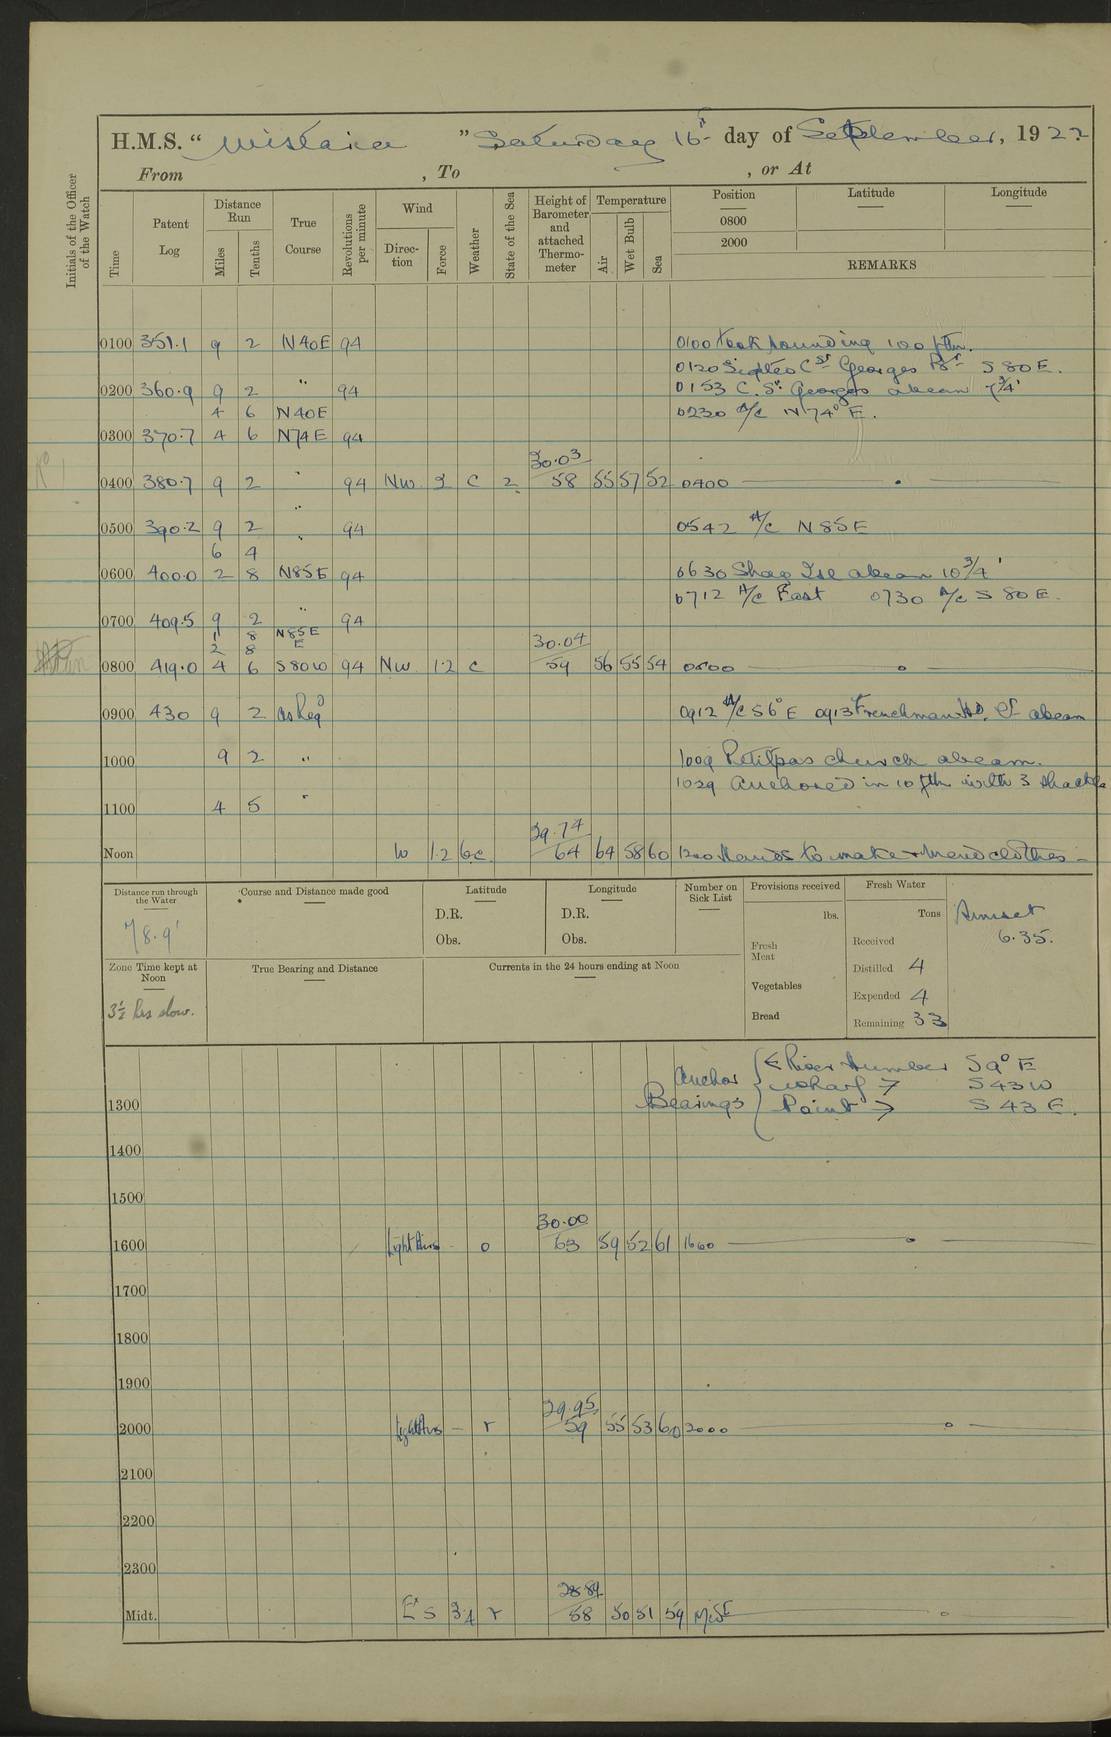 H.M.S. "Wistaria" Saturday 16th day of September, 1922
From , To , or At
Initials of the Officer of the Watch
Time
Patent Log
Distance Run
Miles
Tenths
True Course
Revolutions per minute
Wind
Direction
Force
Weather
State of the Sea
Height of Barometer and attached Thermometer
Temperature
Air
Wet Bulb
Sea
Position Latitude Longitude
0800
2000
REMARKS
0100 351.1 9 2 N40E 94 0100 took sounding 100 fthm.
0120 Sighted C St Georges S 80 E.
0200 360.9 9 2 " 94 0153 C. St. Georges abeam 7 3/4'
4 6 N40E 0230 A/C N 74° E.
0300 370.7 4 6 N74E 94
30.03
0400 380.7 9 2 " 94 NW. 2 C 2 58 55 57 52 0400
0500 390.2 9 2 " 94 0542 A/C N85E
6 4
0600 400.0 2 8 N85E 94 0630 Shag Isl abeam 10 3/4'
0712 A/C East 0730 A/C S 80 E.
0700 409.5 9 2 " 94
1 8 N85E
2 8 E 30.04
0800 419.0 4 6 S80W 94 NW. 1.2 C 59 56 55 54 0800
0900 430 9 2 as Req 0912 A/C S6°E 0913 Frenchman Hd. Lt abeam
1000 9 2 " 1009 Petitpas church abeam.
1029 Anchored in 10 fthm with 3 shackles
1100 4 5 "
29.74
Noon W 1.2 bc 64 64 58 60 1200 Hands to make & mend clothes
Distance run through the Water
78.9'
Course and Distance made good
Latitude
D.R.
Obs.
Longitude
D.R.
Obs.
Number on Sick List
Provisions received
lbs.
Fresh Meat
Vegetables
Bread
Fresh Water
Tons
Received
Distilled 4
Expended 4
Remaining 33
Sunset
6.35.
Zone Time kept at Noon
3½ hrs slow.
True Bearing and Distance
Currents in the 24 hours ending at Noon
Anchor Bearings
River Humber S9°E
Wharf → S43W
1300 Point → S 43 E.
1400
1500
30.00
1600 Light Airs - o 63 59 52 61 1600
1700
1800
1900
29.95
2000 Light Airs — r 59 55 53 60 2000
2100
2200
2300
Midt. E'S 3.4 r 58 50 51 59 Midt